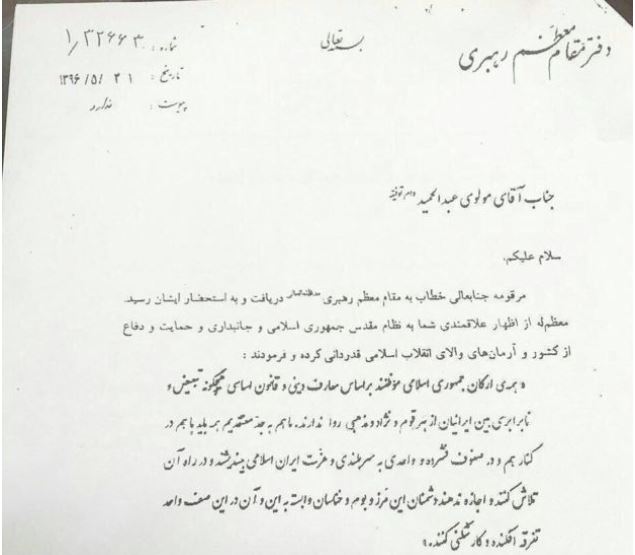 دفتر مقام معظم رهبری
بسمه تعالی
شماره: ۱/۳۲۶۶۳
تاریخ: ۱۳۹۶/۵/۳۱
پیوست: ندارد
جناب آقای مولوی عبدالحمید دام توفیقه
سلام علیکم،
مرقومه جنابعالی خطاب به مقام معظم رهبری دریافت و به استحضار ایشان رسید.
معظم‌له از اظهار علاقمندی شما به نظام مقدس جمهوری اسلامی و جانبداری و حمایت و دفاع
از کشور و آرمان‌های والای انقلاب اسلامی قدردانی کرده و فرمودند:
«همه‌ی ارکان جمهوری اسلامی موظفند براساس معارف دینی و قانون اساسی هیچگونه تبعیض و
نابرابری بین ایرانیان از هر قوم و نژاد و مذهبی روا ندارند. ما هم به جد معتقدیم همه باید باهم در
کنار هم و در صفوف فشرده و واحدی به سربلندی و عزت ایران اسلامی بیندیشند و در راه آن
تلاش کنند و اجازه ندهند دشمنان این مرز و بوم و خناسان وابسته به این و آن در این صف واحد
تفرقه افکنده و کارشکنی کنند.»